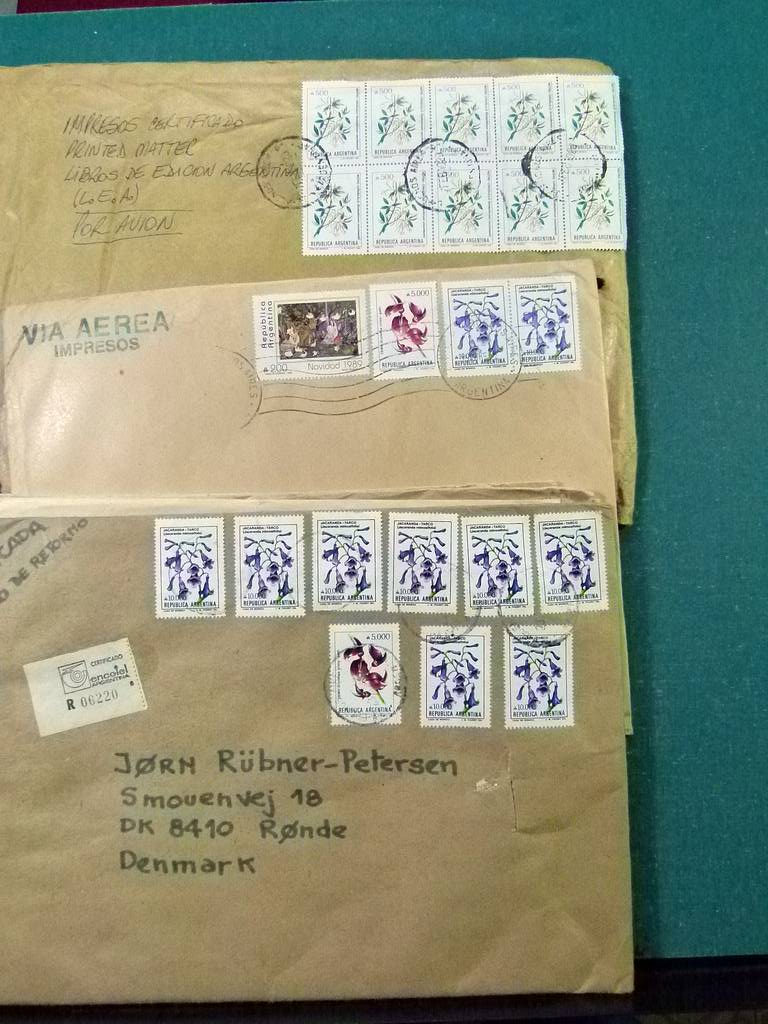 IMPRESOS CERTIFICADO
PRINTED MATTER
LIBROS DE EDICION ARGENTINA
(L.E.A.)
POR AVION
₳500 ₳500 ₳500 ₳500 ₳500
REPUBLICA ARGENTINA REPUBLICA ARGENTINA REPUBLICA ARGENTINA REPUBLICA ARGENTINA REPUBLICA ARGENTINA
REPUBLICA ARGENTINA REPUBLICA ARGENTINA REPUBLICA ARGENTINA REPUBLICA ARGENTINA REPUBLICA ARGENTINA
VIA AEREA
IMPRESOS
República
Argentina
Navidad 1989
₳5.000
REPUBLICA ARGENTINA
JACARANDA - TARCO JACARANDA - TARCO
ARGENTINA
CADA
DE RETORNO
JACARANDA - TARCO JACARANDA - TARCO JACARANDA - TARCO JACARANDA - TARCO JACARANDA - TARCO JACARANDA - TARCO
₳10.000 ₳10.000 ₳10.000 ₳10.000 ₳10.000 ₳10.000
REPUBLICA ARGENTINA REPUBLICA ARGENTINA REPUBLICA ARGENTINA REPUBLICA ARGENTINA REPUBLICA ARGENTINA REPUBLICA ARGENTINA
₳5.000
REPUBLICA ARGENTINA REPUBLICA ARGENTINA REPUBLICA ARGENTINA
CERTIFICADO
encotel
ARGENTINA
R 06220
JØRN Rübner-Petersen
Smouenvej 18
DK 8410 Rønde
Denmark